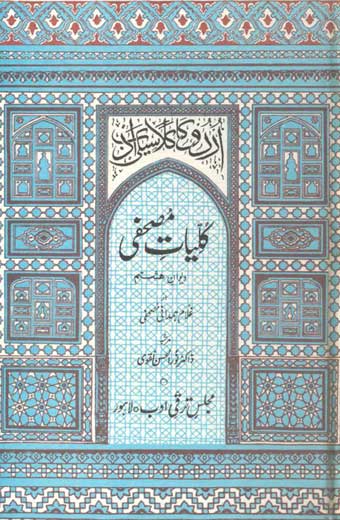 اردو کا کلاسیکی ادب
کلیاتِ مصحفی
دیوانِ ہشتم
غلام ہمدانی مصحفی
مرتبہ
ڈاکٹر نورالحسن نقوی
مجلس ترقی ادب، لاہور